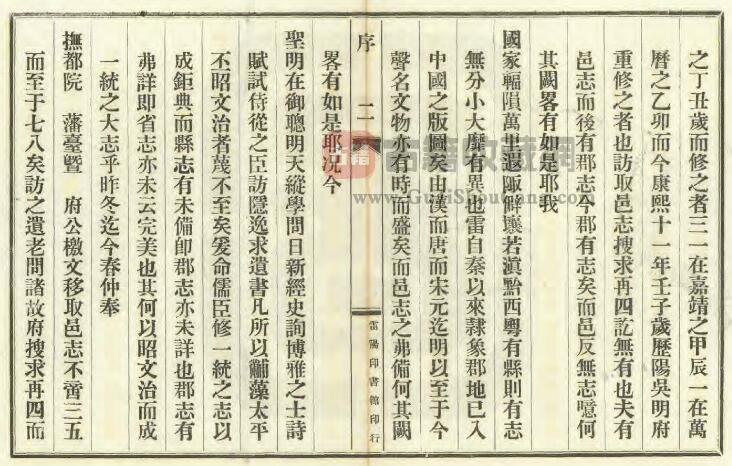 之丁丑歲而修之者三一在嘉靖之甲辰一在萬
曆之乙卯而今康熙十一年壬子歲歷陽吳明府
重修之者也訪取邑志搜求再四訖無有也夫有
邑志而後有郡志今郡有志矣而邑反無志噫何
其闕畧有如是耶我
國家輻隕萬里遐陬僻壤若滇黔西粵有縣則有志
無分小大靡有異也雷自秦以來隸象郡地已入
中國之版圖矣由漢而唐而宋元迄明以至于今
聲名文物亦有時而盛矣而邑志之弗備何其闕
序 二
雷陽印書館印行
畧有如是耶况今
聖明在御聰明天縱學問日新經史詢博雅之士詩
賦試侍從之臣訪隱逸求遺書凡所以黼藻太平
丕昭文治者蔑不至矣爰命儒臣修一統之志以
成鉅典而縣志有未備卽郡志亦未詳也郡志有
弗詳即省志亦未云完美也其何以昭文治而成
一統之大志乎昨冬迄今春仲奉
撫都院 藩臺曁 府公檄文移取邑志不啻三五
而至于七八矣訪之遺老問諸故府搜求再四而
古籍收藏網
www.GuJiShouCang.com